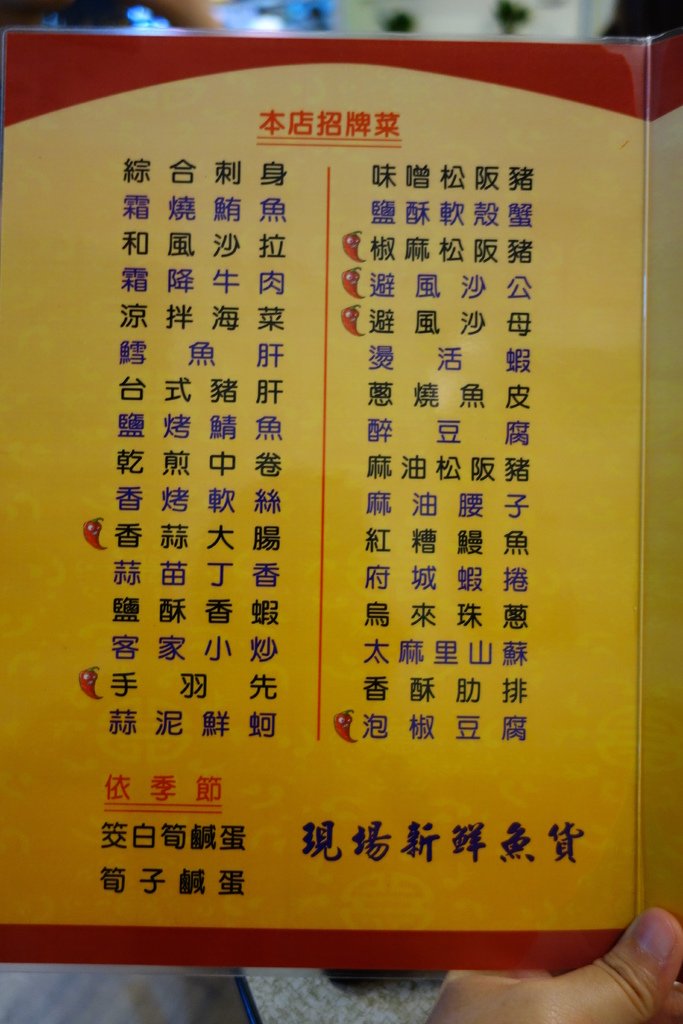 本店招牌菜
綜合刺身
霜燒鮪魚
和風沙拉
霜降牛肉
涼拌海菜
鱈魚肝
台式豬肝
鹽烤鯖魚
乾煎中卷
香烤軟絲
香蒜大腸
蒜苗丁香
鹽酥香蝦
客家小炒
手羽先
蒜泥鮮蚵
味噌松阪豬
鹽酥軟殼蟹
椒麻松阪豬
避風沙公
避風沙母
燙活蝦
蔥燒魚皮
醉豆腐
麻油松阪豬
麻油腰子
紅糟鰻魚
府城蝦捲
烏來珠蔥
太麻里山蘇
香酥肋排
泡椒豆腐
依季節
筊白筍鹹蛋
筍子鹹蛋
現場新鮮魚貨